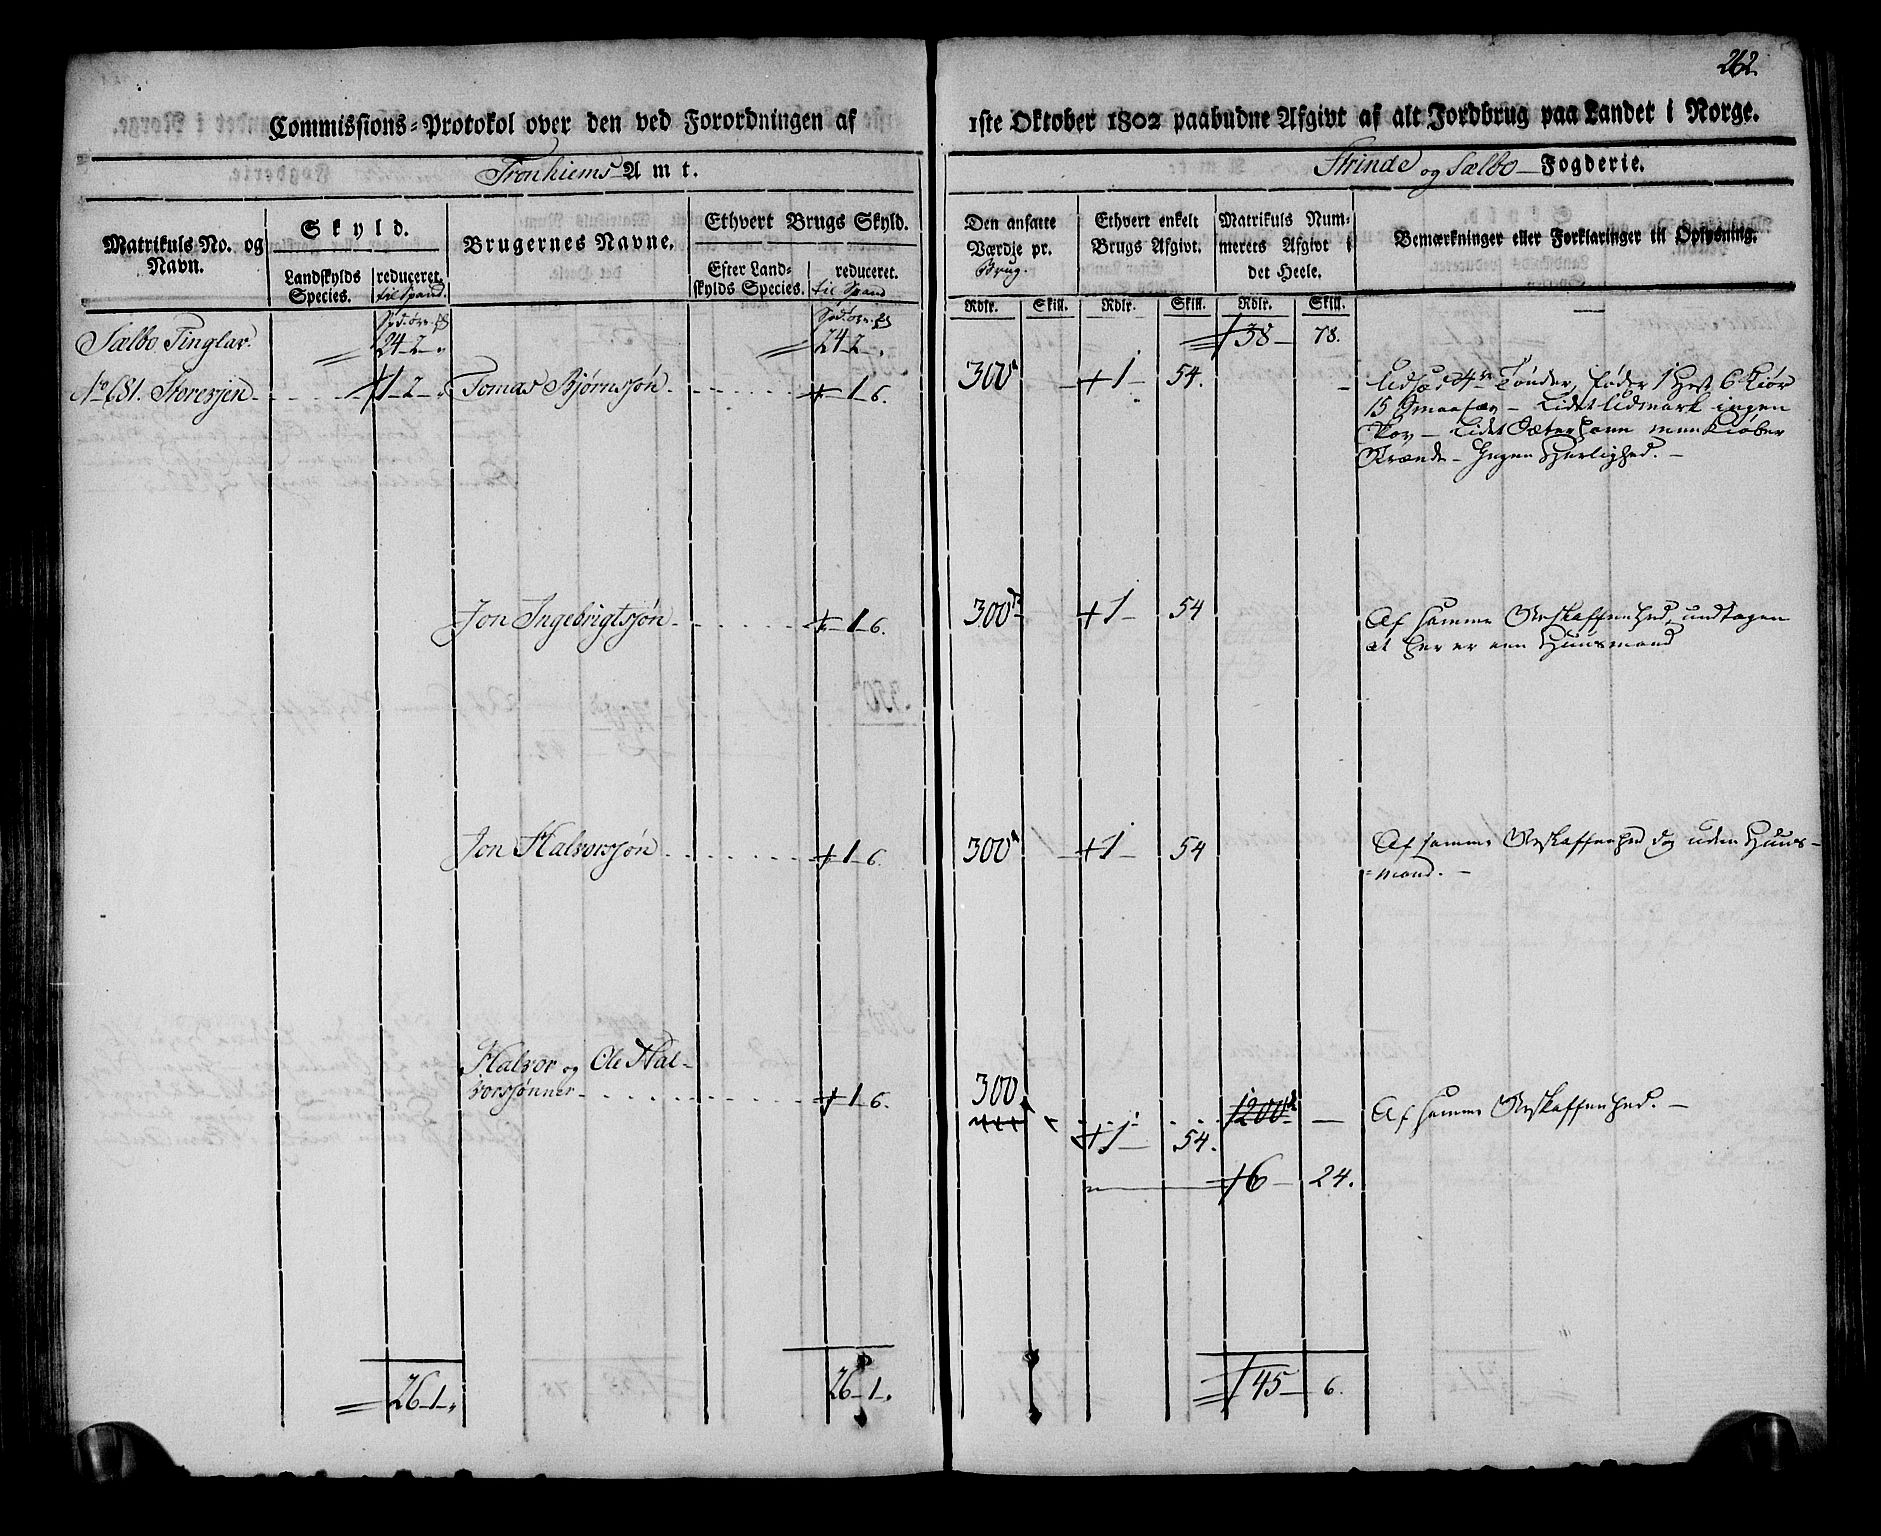 262.
Commissions-Protokol over den ved Forordningen af 1ste Oktober 1802 paabudne Afgivt af alt Jordbrug paa Landet i Norge.
Tronhiems Amt. Strinde og Sælbo Fogderie.
Matrikuls No. og Navn. Skyld. Brugernes Navne. Ethvert Brugs Skyld. Den ansatte Værdje pr. Brug Ethvert enkelt Brugs Afgivt. Matrikuls Nummerets Afgivt i det Heele. Bemærkninger eller Forklaringer til Oplysning.
Landskylds Species. reduceret til Spand Efter Landskylds Species. reduceret. til Spand
Rdlr. Skill. Rdlr. Skill. Rdlr. Skill.
Sælbo Tinglav. 24 - 2 - „ 24 - 2 - „ 138 - 78.
No 181. Storesjen 1 - 2 - „ Tomas Bjørnssøn 1 - 6. 300 1 - 54. Udsæd 4 Tønder, føder 1 Hest 6 Kiør
15 Smaafæ - Lidet Udmark ingen
Skov - Lidet Sæterhavn men kiøber
Brænde - Ingen Herlighed. -
Jon Ingebrigtsøn 1 - 6. 300 1 - 54 Af samme Beskaffenhed, undtagen
at her er een Huusmand
Jon Halvorssøn 1 - 6. 300 1 - 54 Af samme Beskaffenhed dog uden Huus-
mand. -
Halvor og Ole Hal-
vorssønner 1 - 6. 300 1 - 54. 1200 - Af samme Beskaffenhed. -
6 - 24.
26 - 1 - „ 26 - 1 - „ 145 - 6.